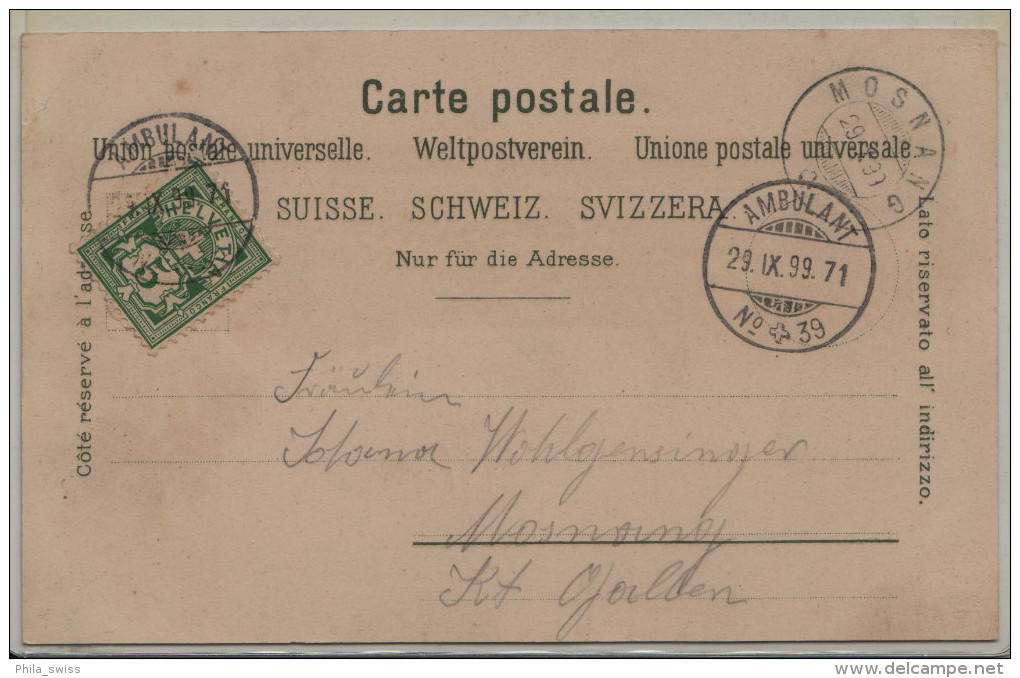 Carte postale.
Union postale universelle. Weltpostverein. Unione postale universale
SUISSE. SCHWEIZ. SVIZZERA.
Nur für die Adresse.
Côté réservé à l'adresse.
Lato riservato all' indirizzo.
AMBULANT
IX 99
HELVETIA
FRANCO
5
MOSNANG
29. IX 99
AMBULANT
29. IX. 99. 71
No 39
Fräulein
Wohlgensinger
Mosnang
Kt Gallen
Phila_swiss
www.delcampe.net